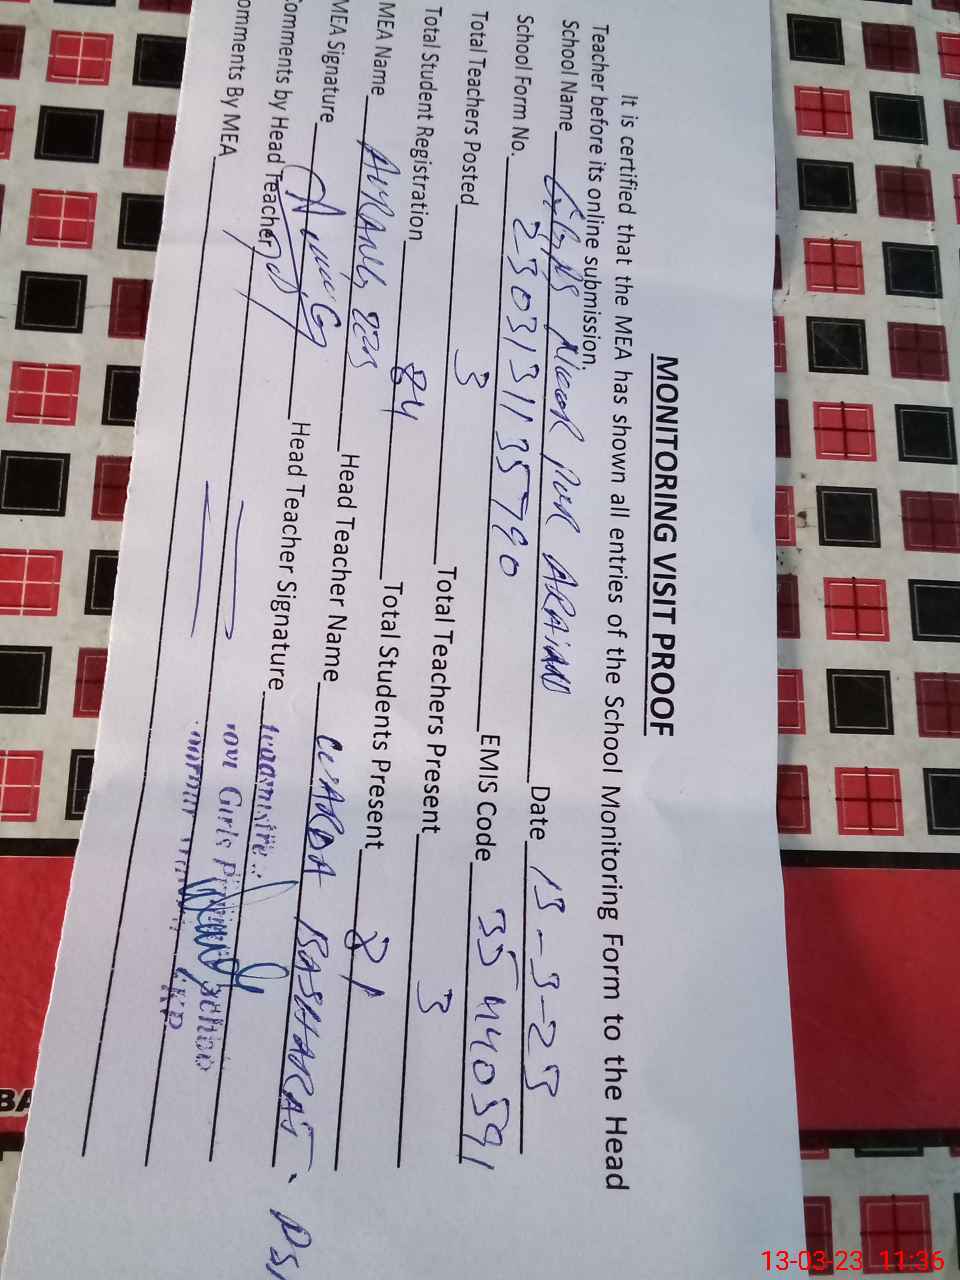 MONITORING VISIT PROOF
It is certified that the MEA has shown all entries of the School Monitoring Form to the Head
Teacher before its online submission.
School Name GGPS PUR ARAIAN Date 13-3-23
School Form No. 2303131135790 EMIS Code 35440591
Total Teachers Posted 3 Total Teachers Present 3
Total Student Registration 84 Total Students Present 81
MEA Name Head Teacher Name WARDA BASHARAT
MEA Signature Head Teacher Signature
Comments by Head Teacher
omments By MEA
Girls
BA
13-03-23 11:36